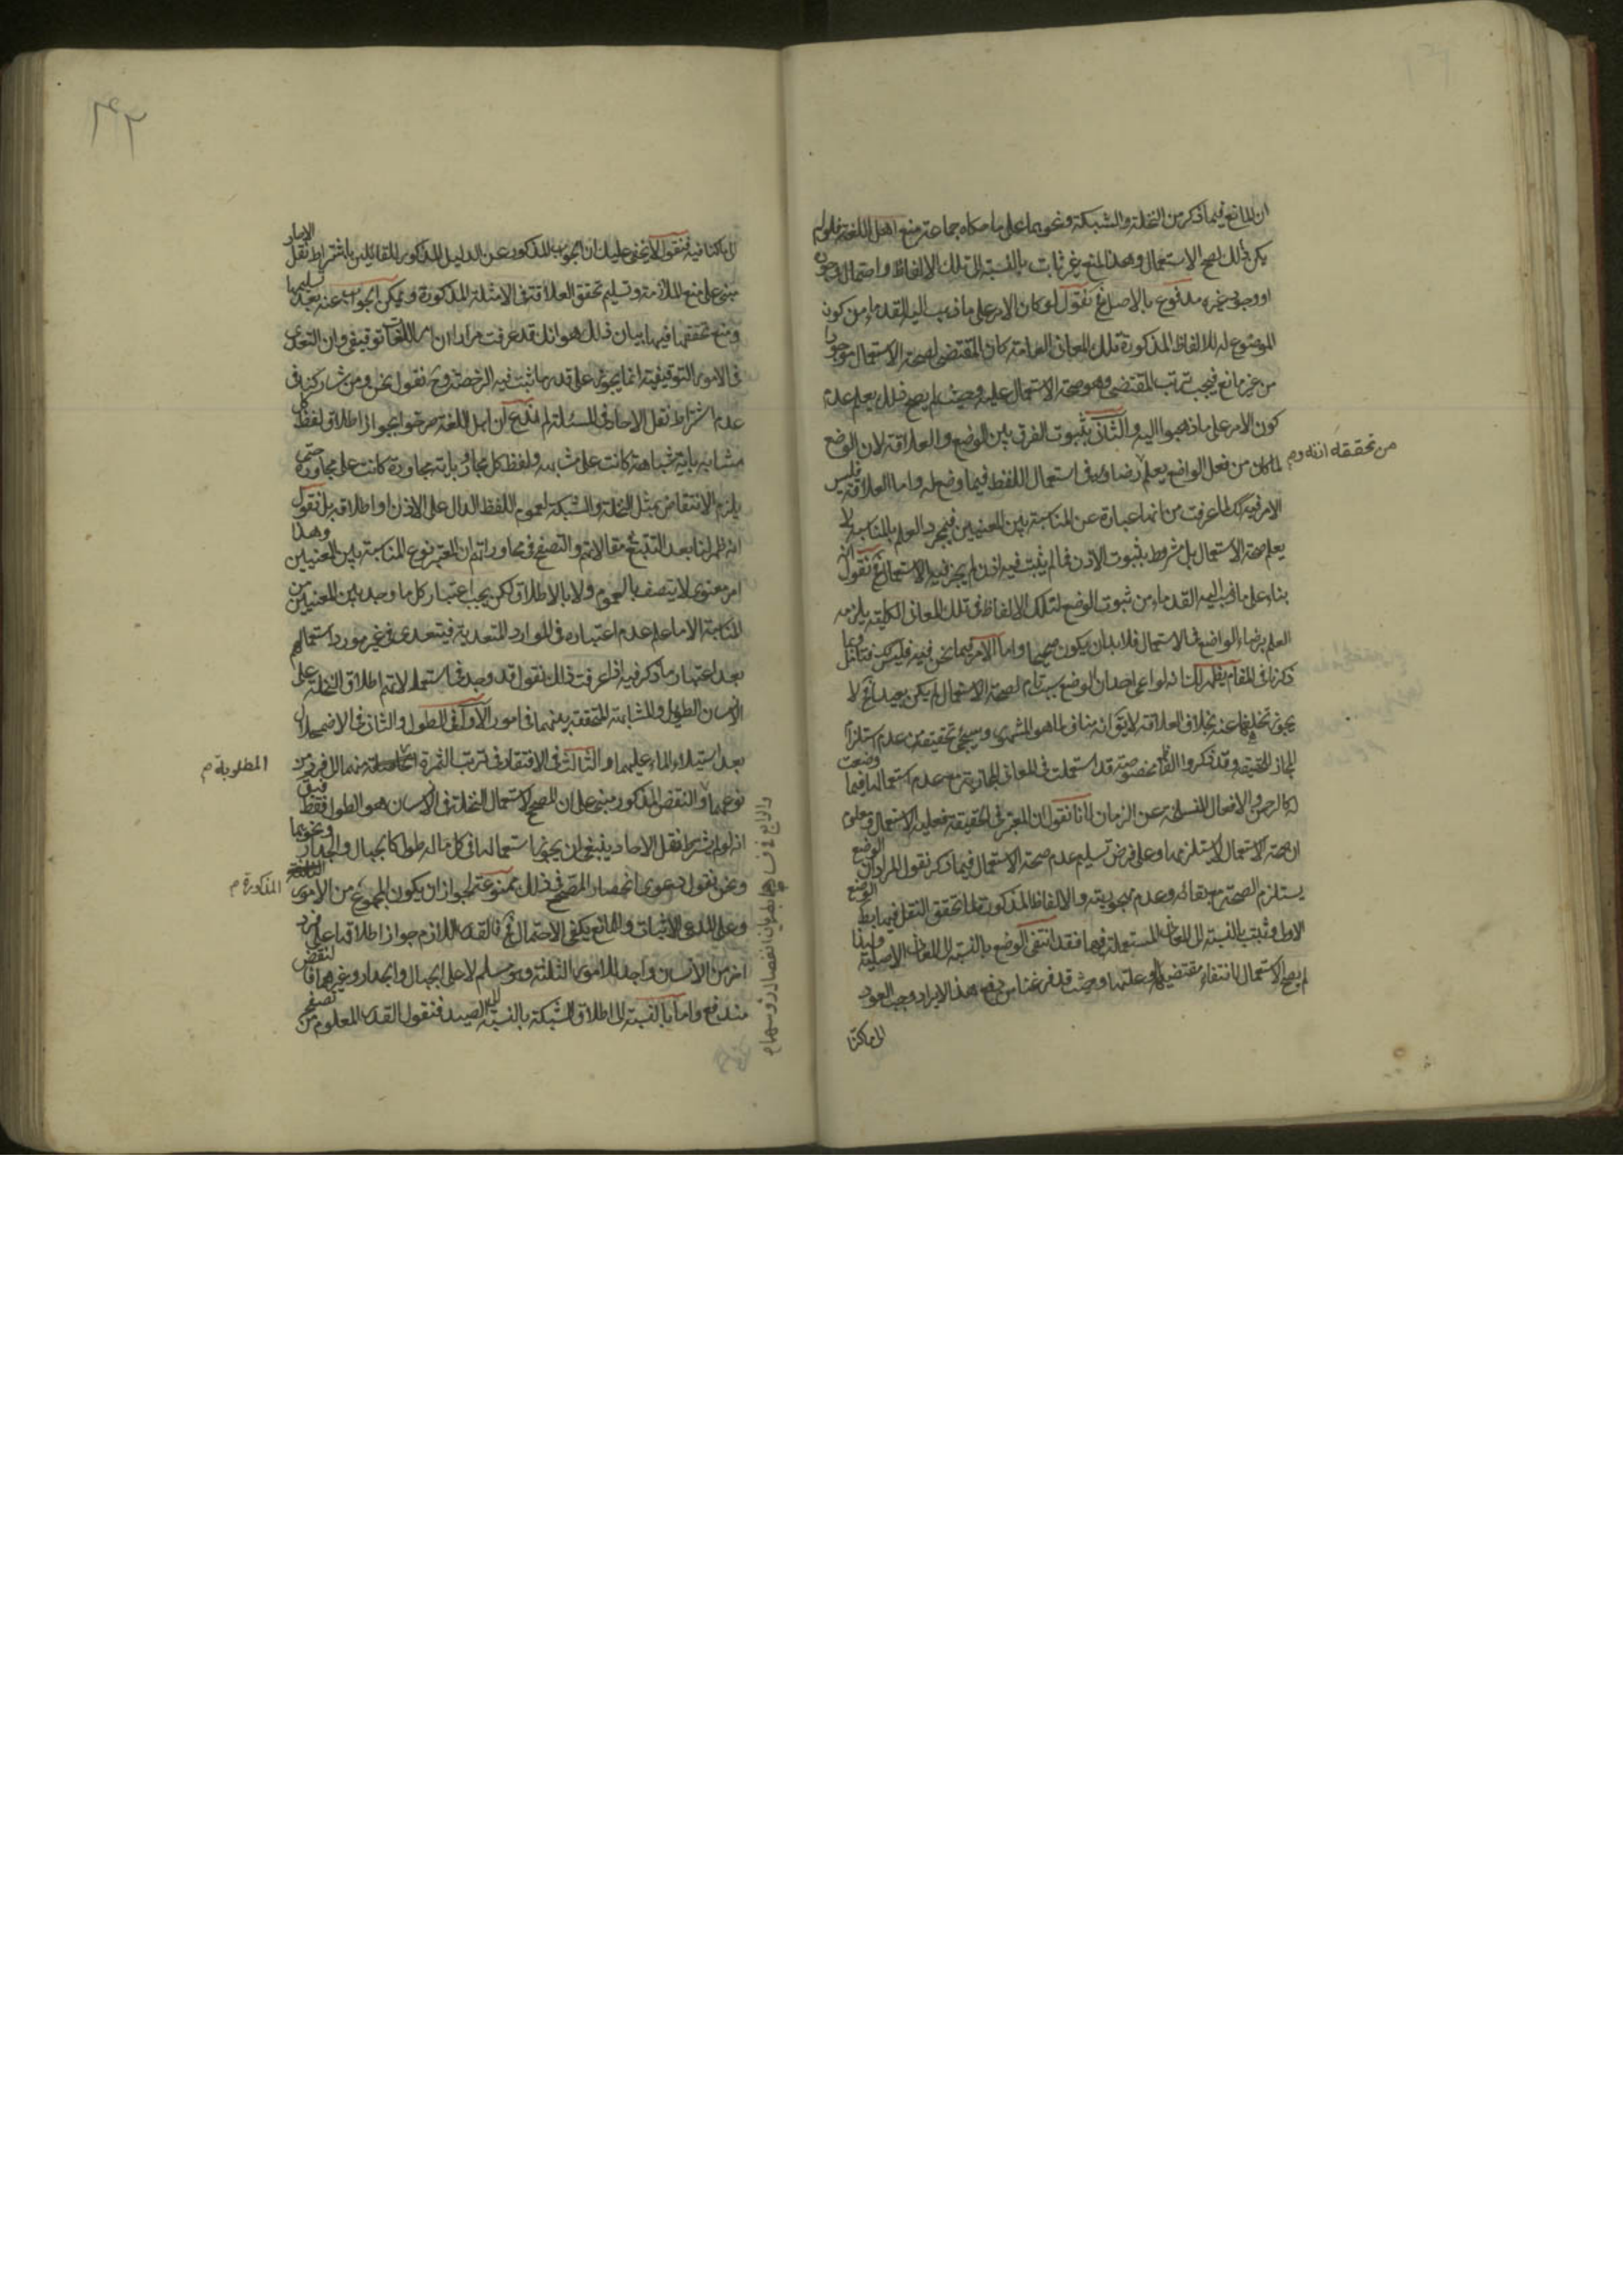 ان المانع فيما ذكر من النخلة والشبكة ونحوهما على ما حكاه جماعة منع اهل اللغة فلو لم
يكن ذلك لصح الاستعمال وهذا المنع غير ثابت بالنسبة الى تلك الالفاظ واحتمال وجوده
او وجود غيره مدفوع بالاصل نقول لو كان الامر على ما ذهب اليه القدماء من كون
الموضوع له للالفاظ المذكورة تلك المعاني العامة كان المقتضى لصحة الاستعمال موجودا
من غير مانع فيجب ترتب المقتضى وهو صحة الاستعمال عليه وحيث لم يصح ذلك يعلم عدم
كون الامر على ما ذهبوا اليه والثاني بثبوت الفرق بين الوضع والعلاقة لان الوضع
لما كان من فعل الواضع يعلم رضاؤه في استعمال اللفظ فيما وضع له واما العلاقة فليس
من تحققه انه وم
الامر فيه كك لما عرفت من انها عبارة عن المناسبة بين المعنيين فبمجرد العلم بالمناسبة لا
يعلم صحة الاستعمال بل مشروط بثبوت الاذن فما لم يثبت فيه اذن لم يجز فيه الاستعمال نقول
بناء على ما ذهب اليه القدماء من ثبوت الوضع لتلك الالفاظ في تلك المعاني الكلية يلزمه
العلم برضاء الواضع في الاستعمال فلا بد ان يكون صحيحا واما الامر فيما نحن فيه فليس كك فتامل
ذكرنا في المقام يظهر لك انه لو ادعى احد ان الوضع سبب تام لصحة الاستعمال لم يكن بعيدا لا
يجوز تخلفها عنه بخلاف العلاقة لا يق انه مناف لما هو المشهور وسيجئ تحقيقه من عدم استلزام
المجاز للحقيقة وقد ذكروا الفاظ مخصوصة قد استعملت في المعاني المجازية مع عدم استعمالها فيما وضعت
له كالرحمن والافعال المنسلخة عن الزمان لانا نقول ان المعتبر في الحقيقة فعلية الاستعمال ومعلوم
ان صحة الاستعمال لا يستلزمها وعلى فرض تسليم عدم صحة الاستعمال فيما ذكر نقول المراد ان الوضع
يستلزم الصحة مع بقائه وعدم مهجوريته والالفاظ المذكورة لما تحقق النقل فيها بطل الوضع
الاول وثبت بالنسبة الى المعاني المستعملة فيها فقد انتفى الوضع بالنسبة الى المعاني الاصلية ولهذا
لم يصح الاستعمال لانتفاء مقتضيها وعلتها وحيث قد فرغنا من دفع هذا الايراد وجب العود
الى ما كنا
الى ما كنا فيه فنقول لا يخفى عليك ان الجواب المذكور عن الدليل المذكور للقائلين باشتراط نقل الاحاد
مبني على منع الملازمة وتسليم تحقق العلاقة في الامثلة المذكورة ويمكن الجواب عنه بعد تسليمها
ومنع تحققها فيها بيان ذلك هو انك قد عرفت مرارا ان امر اللغات توقيفي وان التعدي
في الامور التوقيفية انما يجوز على قدر ما ثبت فيه الرخصة وح نقول نحن ومن شاركنا في
عدم اشتراط نقل الاحاد في المسئلة لم ندع ان اهل اللغة صرحوا بجواز اطلاق لفظ كل
مشابه باية مشابهة كانت على مشابهه ولفظ كل مجاور باية مجاورة كانت على مجاوره حتى
يلزم الانتقاض بمثل النخلة والشبكة لعموم اللفظ الدال على الاذن او اطلاقه بل نقول
انه ظهر لنا بعد التتبع في مقالاتهم والتصفح في محاوراتهم ان المعتبر نوع المناسبة بين المعنيين وهذا
امر معنوي لا يتصف بالعموم ولا بالاطلاق لكن يجب اعتبار كل ما وجد بين المعنيين من
المناسبة الا ما علم عدم اعتباره في الموارد المتعدية فيتعدى في غير مورد استعمالهم
بعد اعتبار ما ذكر فيه اذا عرفت ذلك نقول قد وجد في استعمالاتهم اطلاق النخلة على
الانسان الطويل والمشابهة المتحققة بينهما في امور الاول في الطول والثاني في الاضمحلال
بعد استيلاء الماء عليهما والثالث في الافتقار في ترتب الثمرة منهما الى فرد من
المطلوبة م
نوعهما والنقض المذكور مبني على ان المصحح لاستعمال النخلة في الانسان هو الطول فقط فيق
والرابع في
انه لو لم يشترط نقل الاحاد ينبغي ان يجوز استعمالها في كل ما له طول كالجبال والجدار ونحوهما
ونحن نقول دعوى انحصار المصحح في ذلك ممنوعة لجواز ان يكون المجموع من الامور
المذكورة م
وعلى المدعي الاثبات والمانع يكفي الاحتمال فالقدر اللازم جواز اطلاقها على فرد
اخر من الانسان واجد للامور الثلثة وهو مسلم لا على الجبال والجدار وغيرهما فالنقض
مندفع واما بالنسبة الى اطلاق الشبكة بالنسبة الى الصيد فنقول القدر المعلوم من تصفح